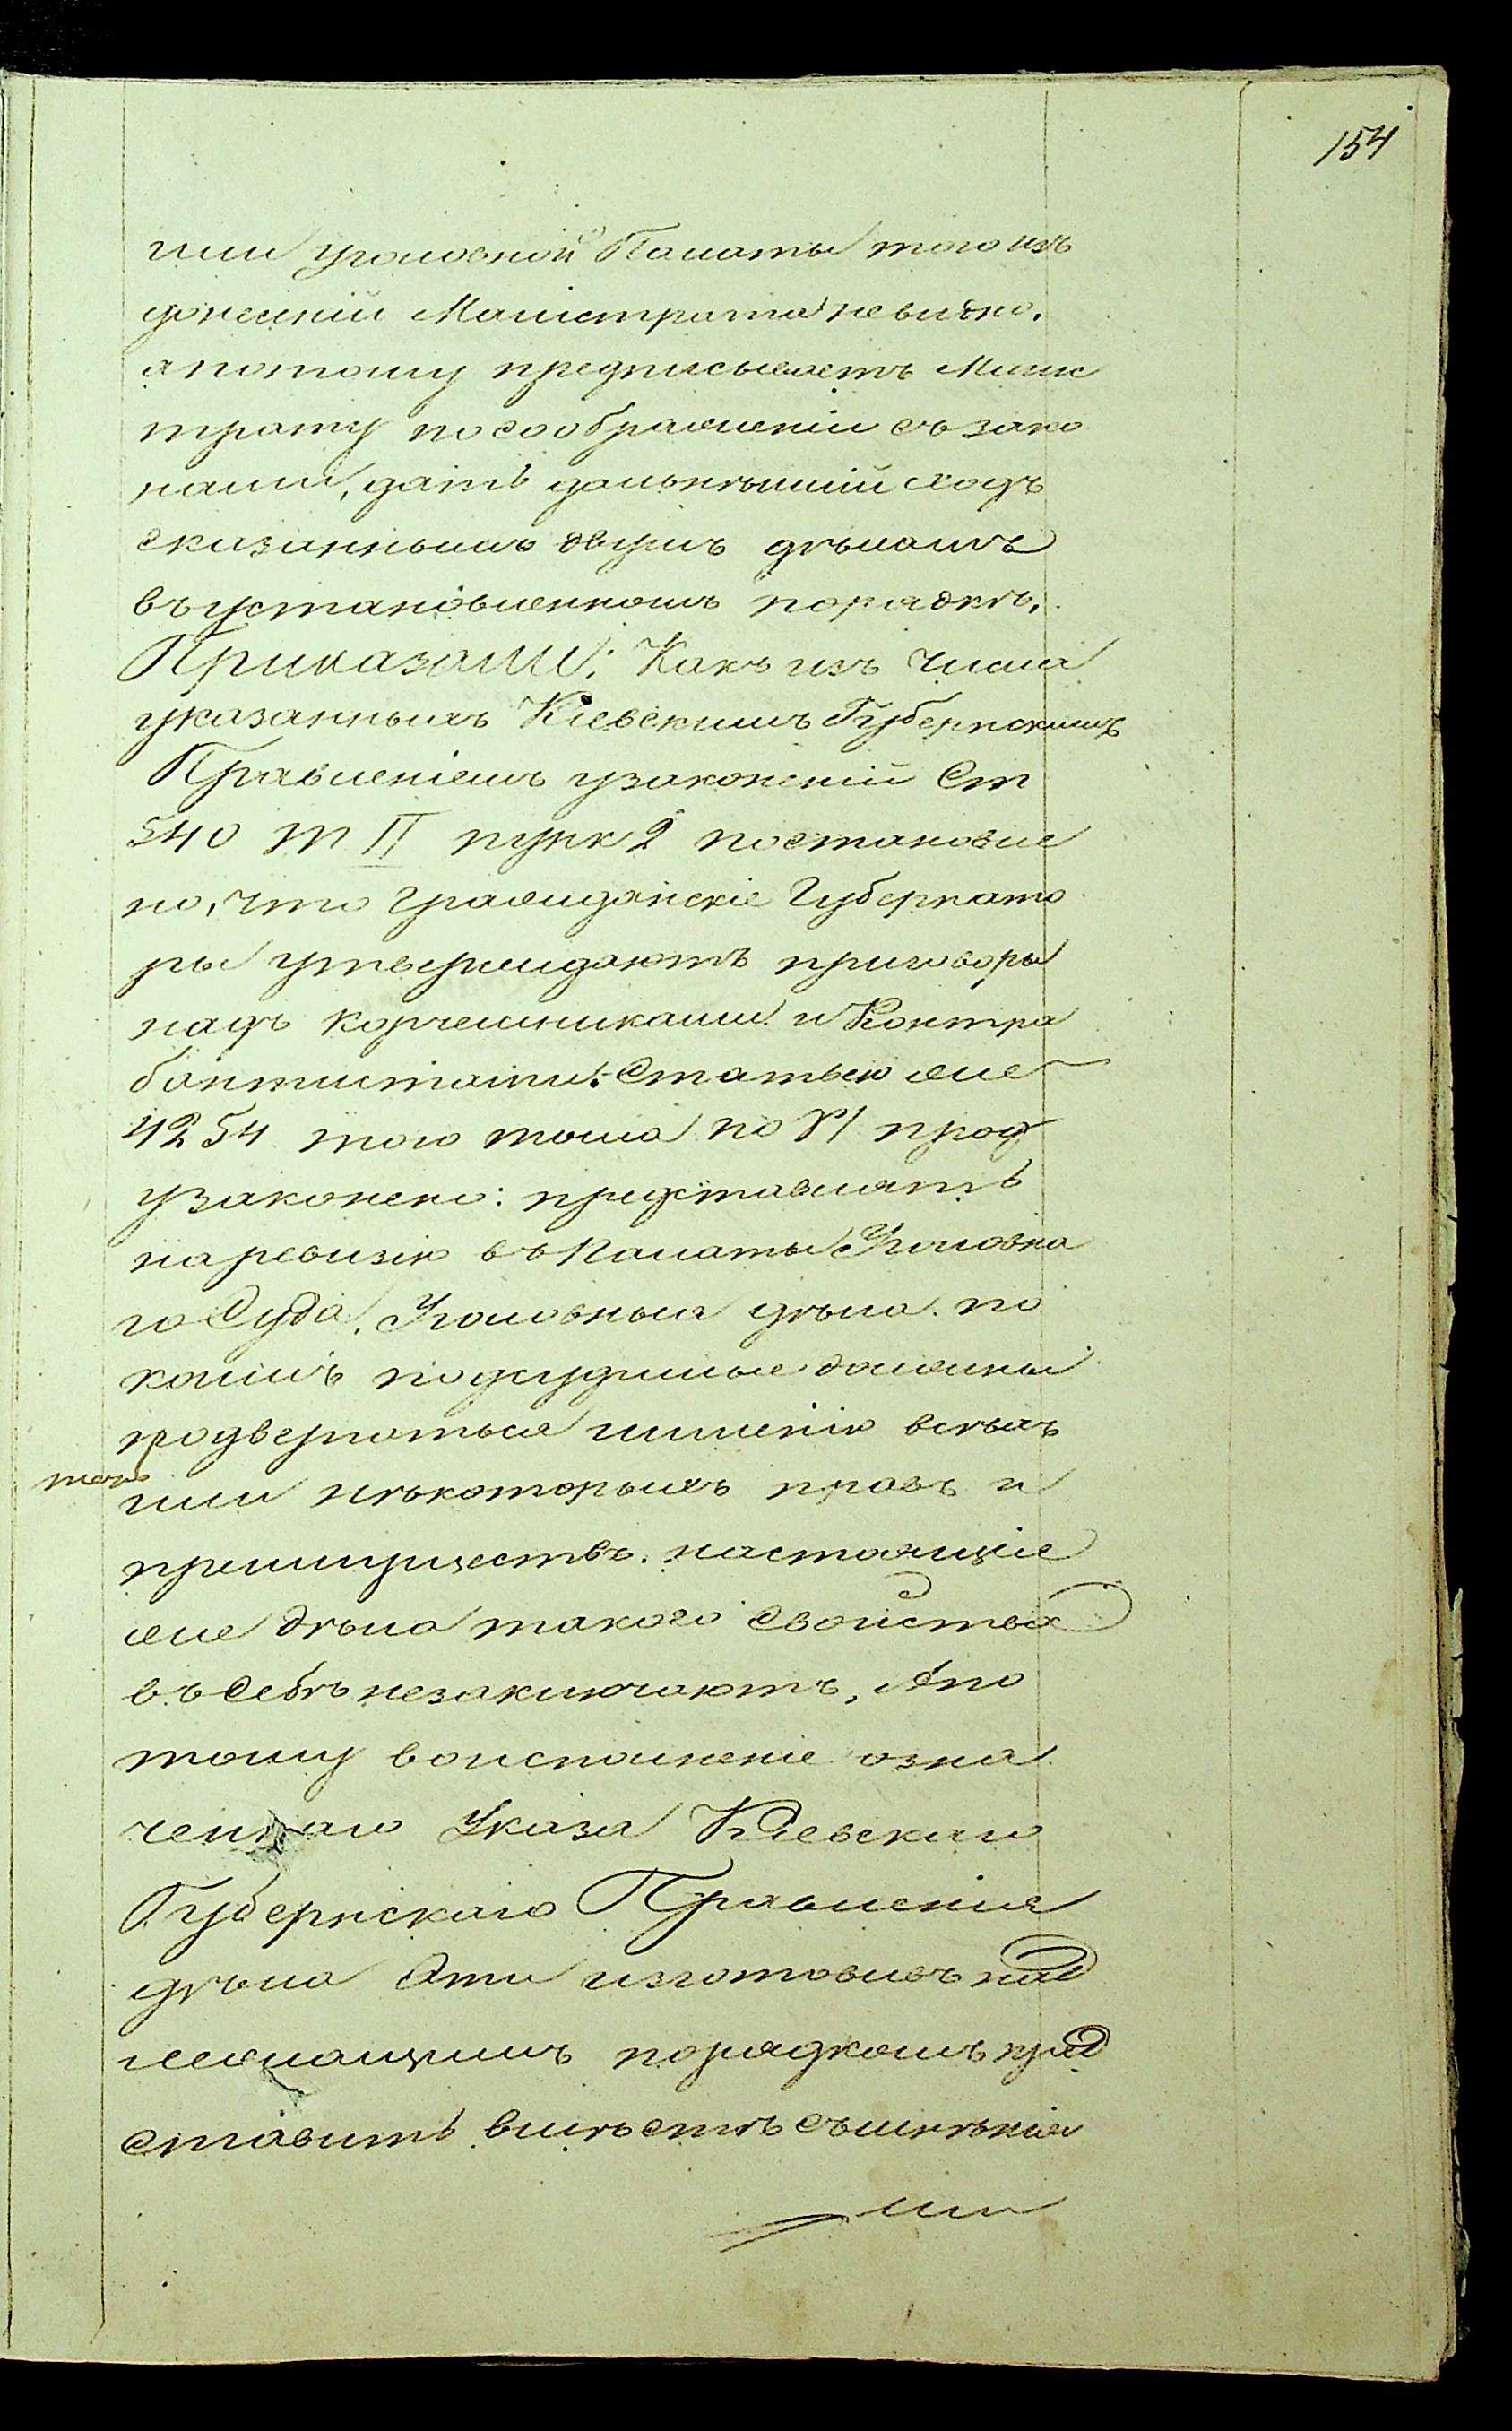 154
или уголовной Палаты того изъ
донесеній Магистрата невидно,
а потому предписываетъ Магис
трату посоображеніи съ зако
нами, дать дальнѣйшій ходъ
сказаннымъ двумъ дѣламъ
въ установленномъ порядкѣ,
Приказали: Какъ изъ числа
указанныхъ Кіевскимъ Губернскимъ
Правленіемъ узаконеній Ст
540 т II пунк 2 постановле
но, что Гражданскіе Губернато
ры утверждаютъ приговоры
надъ корчемниками и Контра
бантистами. Статьею же
4254 того тома по VI прод
узаконено: представлять
на ревизію въ Палаты Уголовна
го Суда, Уголовныя дѣла по
коимъ подсудимые должны
подвергаться лишенію всѣхъ
или нѣкоторыхъ правъ и
преимуществъ. настоящіе
же дѣла такого свойства
въ себѣ незаключаютъ, А по
тому воисполненіе озна
ченнаго Указа Кіевскаго
Губернскаго Правленія
дѣла эти изготовивъ над
лежащимъ порядкомъ пред
ставить вмѣстѣ съ мнѣнія
ми